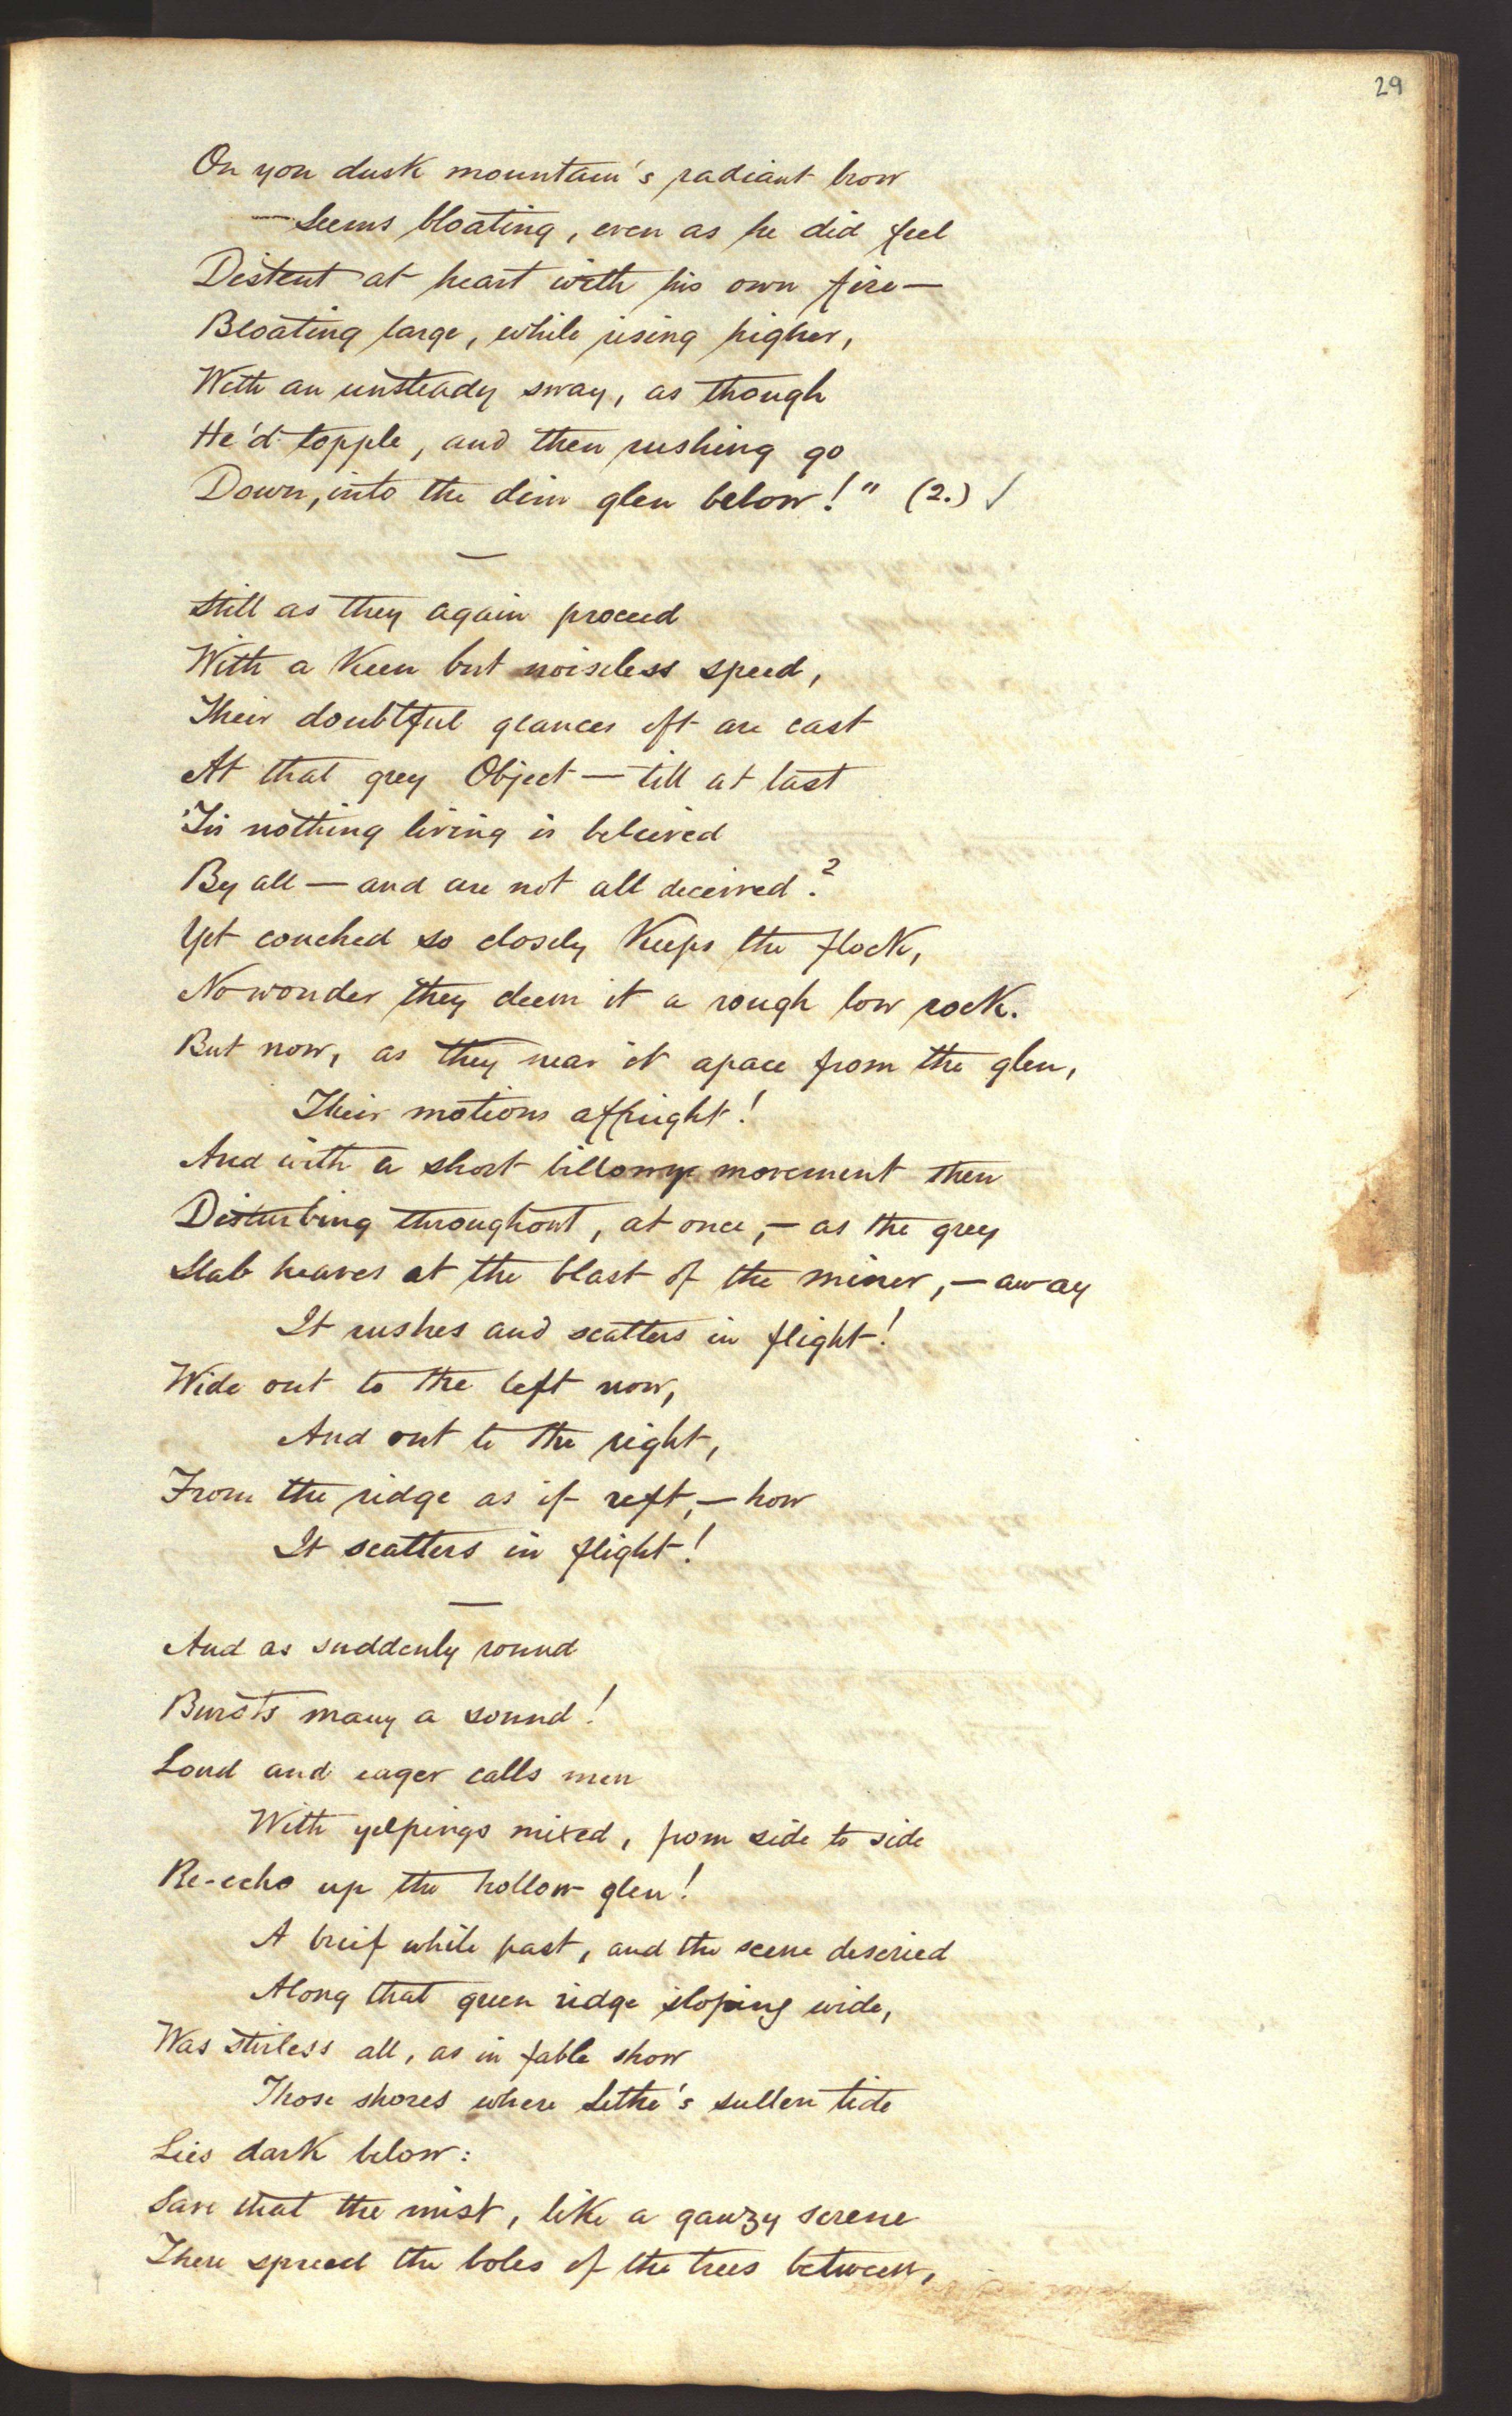 29
On yon dusk mountain's radiant brow
— Seems bloating, even as he did feel
Distent at heart with his own fire —
Bloating large, while rising higher,
With an unsteady sway, as though
He'd topple, and then rushing go
Down, into the dim glen below!" (2.) ✓
—
Still as they again proceed
With a Keen but noiseless speed,
Their doubtful glances oft are cast
At that grey Object — till at last
'Tis nothing living is beleived
By all — and are not all deceived?
Yet couched so closely Keeps the flock,
No wonder they deem it a rough low rock.
But now, as they near it apace from the glen,
Their motions affright!
And with a short billowy movement then
Disturbing throughout, at once, — as the grey
Slab heaves at the blast of the miner, — away
It rushes and scatters in flight!
Wide out to the left now,
And out to the right,
From the ridge as if reft, — how
It scatters in flight!
—
And as suddenly round
Bursts many a sound!
Loud and eager calls men
With yelpings mixed, from side to side
Re-echo up the hollow glen!
A breif while past, and the scene descried
Along that green ridge sloping wide,
Was stirless all, as in fable show
Those shores where Lethe's sullen tide
Lies dark below:
Save that the mist, like a gauzy screne
There spread the boles of the trees between,